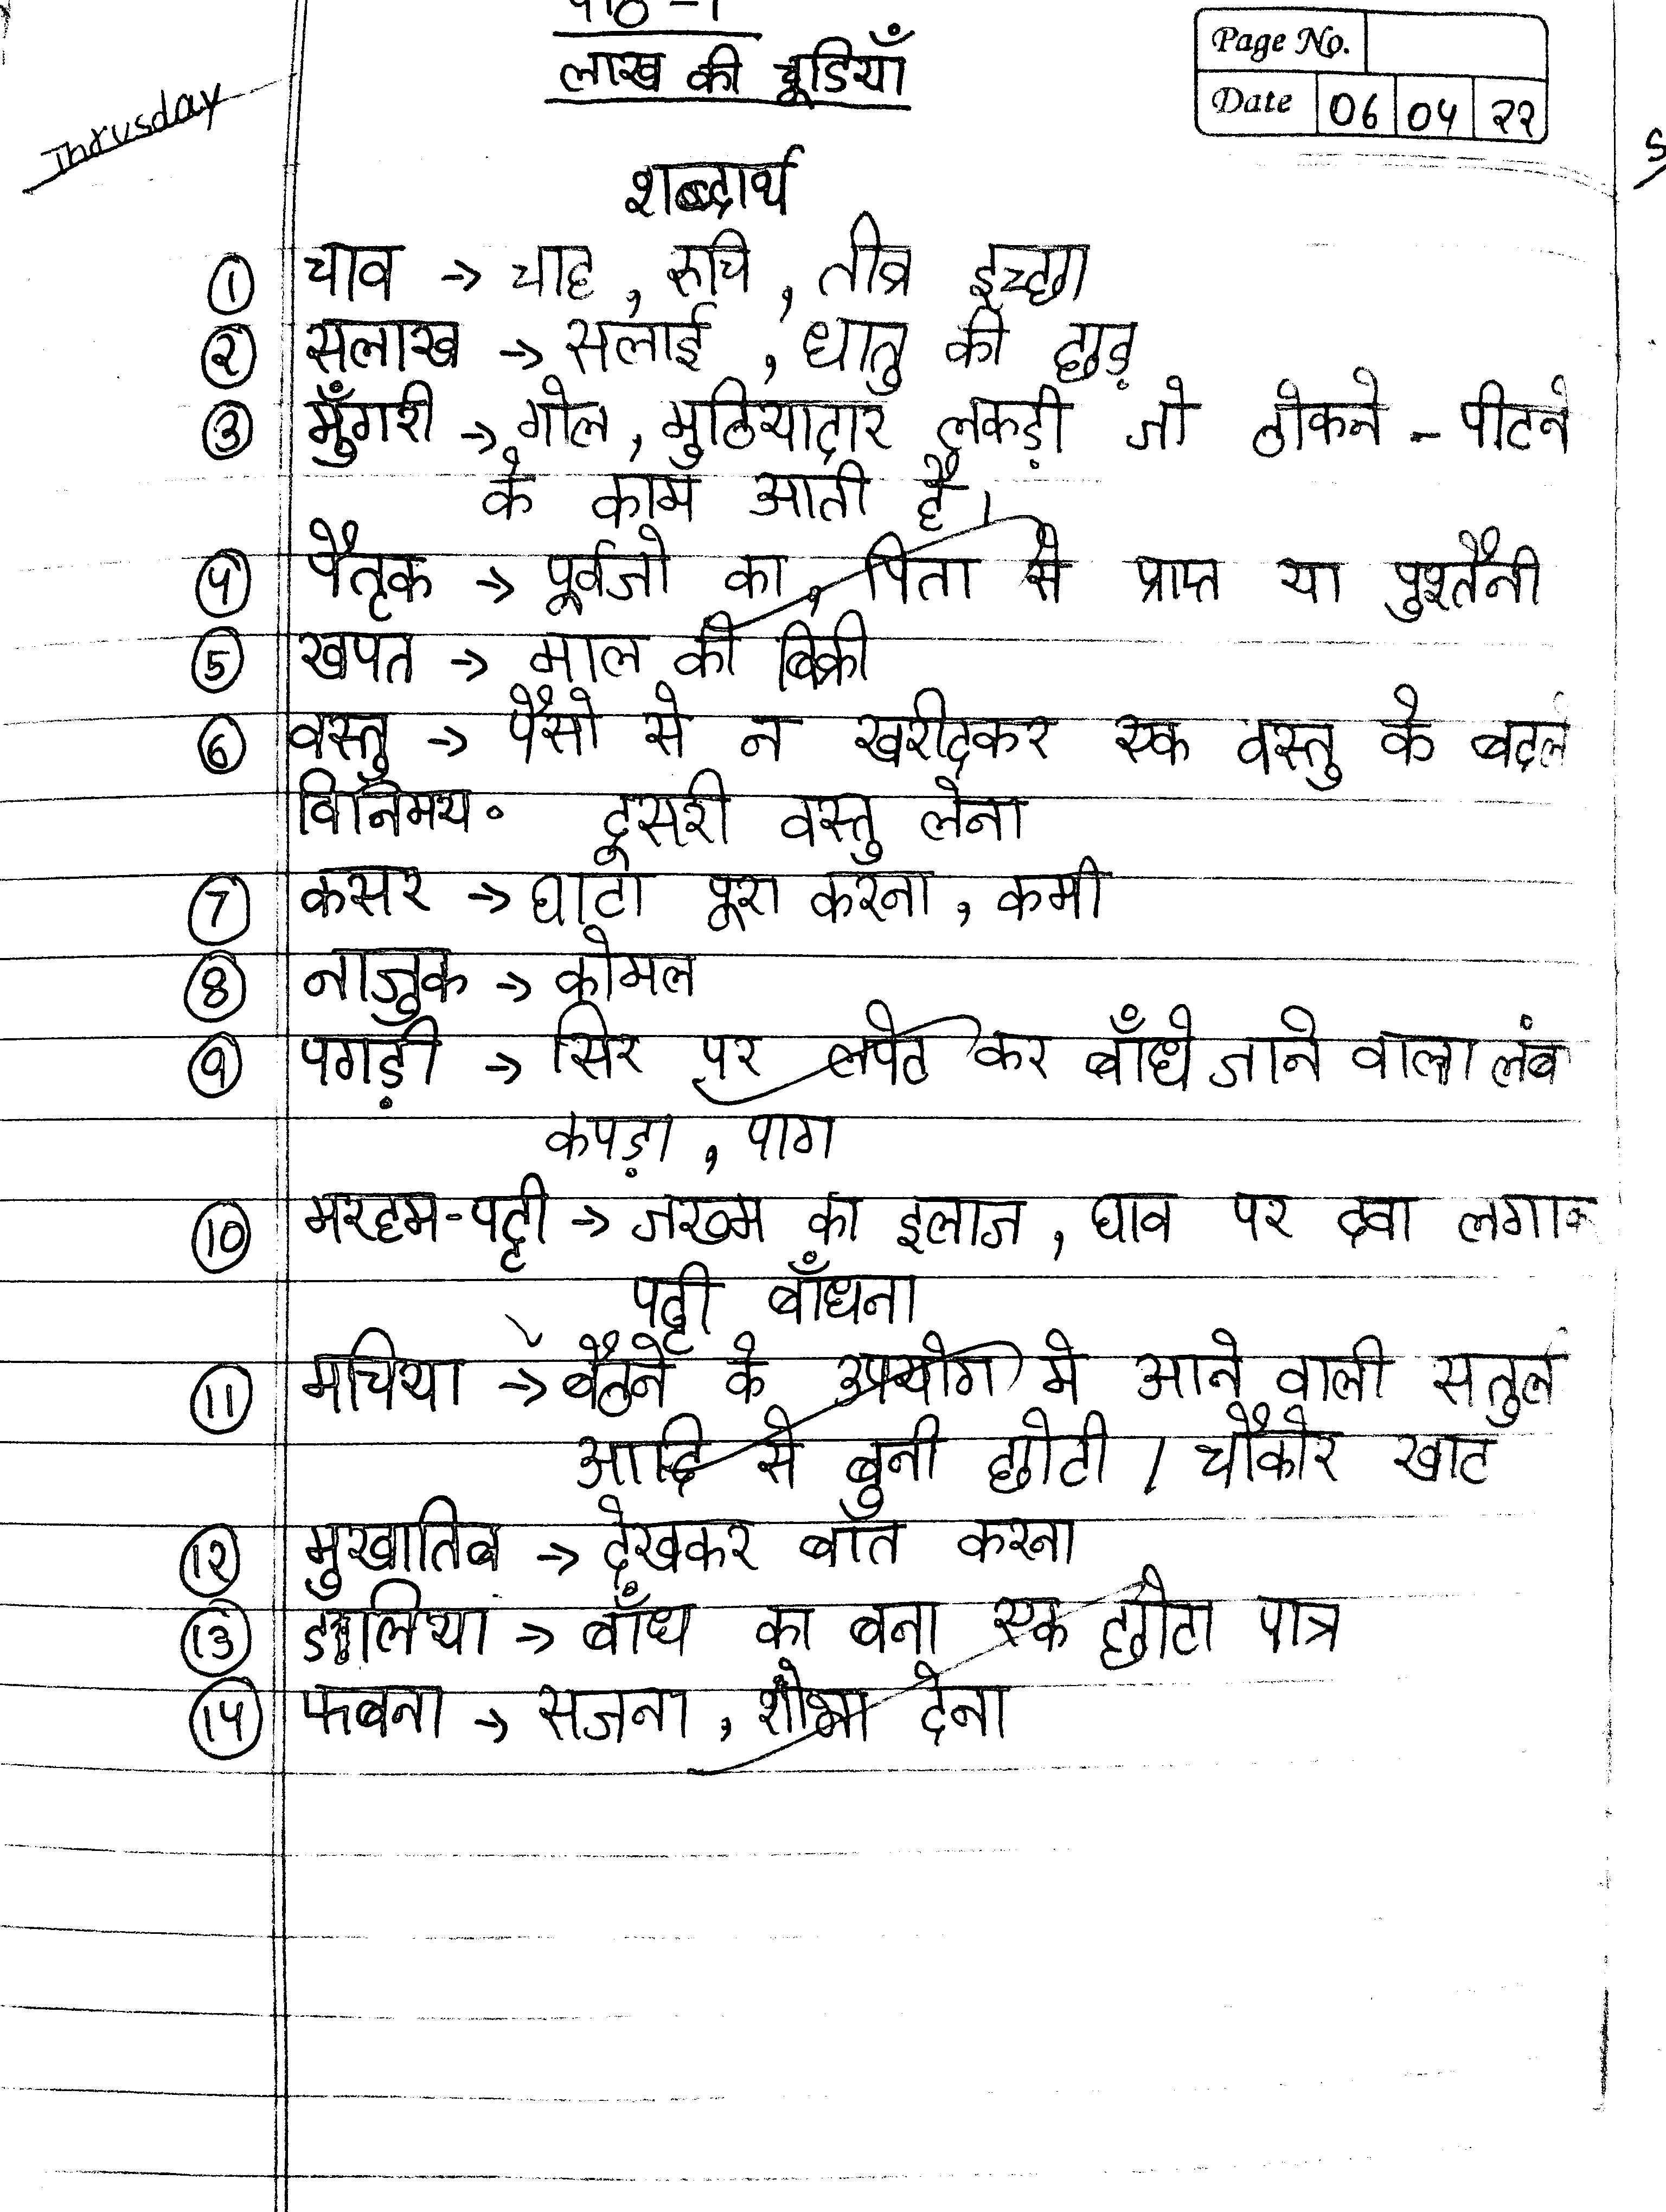 पाठ -1
लाख की चूडियाँ
Page No.
Date 06 04 22
Thrusday
शब्दार्थ
① चाव → चाह, रुचि, तीव्र इच्छा
② सलाख → सलाई, धातु की छड़
③ मुँगरी → गोल, मुठियादार लकड़ी जो ठोकने - पीटने
के काम आती है।
④ पैतृक → पूर्वजो का, पिता से प्राप्त या पुश्तैनी
⑤ खपत → माल की बिक्री
⑥ वस्तु → पैसो से न खरीदकर एक वस्तु के बदले
विनिमय॰ दूसरी वस्तु लेना
⑦ कसर → घाटा पूरा करना, कमी
⑧ नाजुक → कोमल
⑨ पगड़ी → सिर पर लपेट कर बाँधे जाने वाला लंब
कपड़ा, पाग
⑩ मरहम-पट्टी → जख्म का इलाज, घाव पर दवा लगाक
पट्टी बाँधना
⑪ मचिया → बैठने के उपयोग मे आने वाली सतुल
आदि से बुनी छोटी / चौकोर खाट
⑫ मुखातिब → देखकर बात करना
⑬ डलिया → बाँध का बना एक छोटा पात्र
⑭ फबना → सजना, शोभा देना